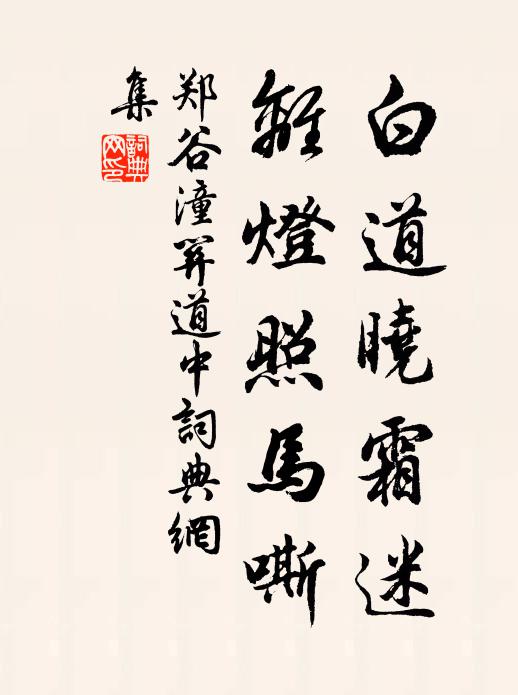 白道曉霜迷
離燈照馬嘶
郑谷潼關道中詞典網
集
詞典網印